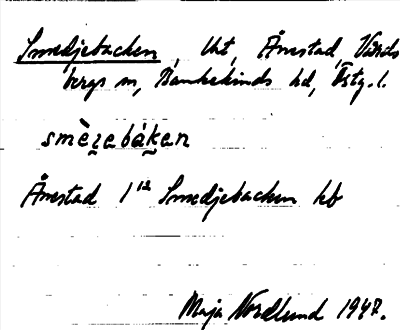 Smedjebacken, lht, Årestad Vårds
bergs sn, Bankekinds hd, Östg. l.
smèʒabákan
Årestad 1¹² Smedjebacken hb
Maja Nordlund 1947.